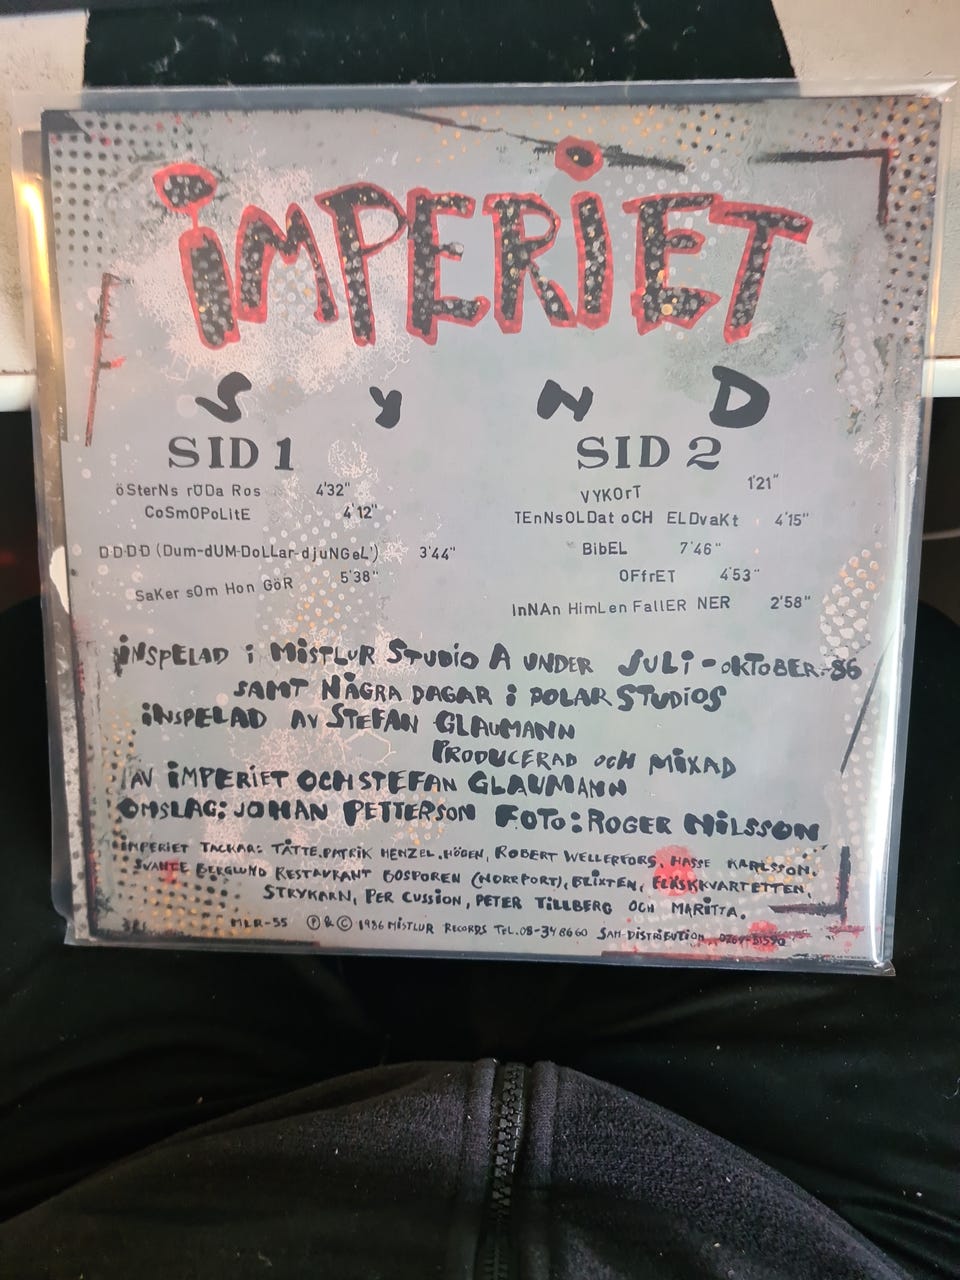 iMPERiET
SYND
SID 1
öSterNs rÖDa Ros 4'32"
CoSmOPoLitE 4'12"
D-D-D-D (Dum-dUM-DoLLar-djuNGeL') 3'44"
SaKer sOm Hon GöR 5'38"
SID 2
VYKOrT 1'21"
TEnNsOLDat oCH ELDvaKt 4'15"
BibEL 7'46"
OFfrET 4'53"
InNAn HimLen FallER NER 2'58"
iNSPELAD i MiSTLUR STUDiO A UNDER JULi-OKTOBER-86
SAMT NÅGRA DAGAR i POLAR STUDiOS
iNSPELAD AV STEFAN GLAUMANN
PRODUCERAD OCH MiXAD
AV iMPERiET OCH STEFAN GLAUMANN
OMSLAG: JOHAN PETTERSON FOTO: ROGER NiLSSON
iMPERiET TACKAR: TÄTTE, PATRiK HENZEL, HÖGEN, ROBERT WELLERFORS, HASSE KARLSSON,
SVANTE BERGLUND RESTAURANT BOSPOREN (NORRPORT), BLiXTEN, FLÄSKKVARTETTEN,
STRYKARN, PER CUSSiON, PETER TiLLBERG OCH MARiTTA.
MLR-55 Ⓟ & © 1986 MiSTLUR RECORDS TEL. 08-34 86 60 SAM-DiSTRiBUTiON